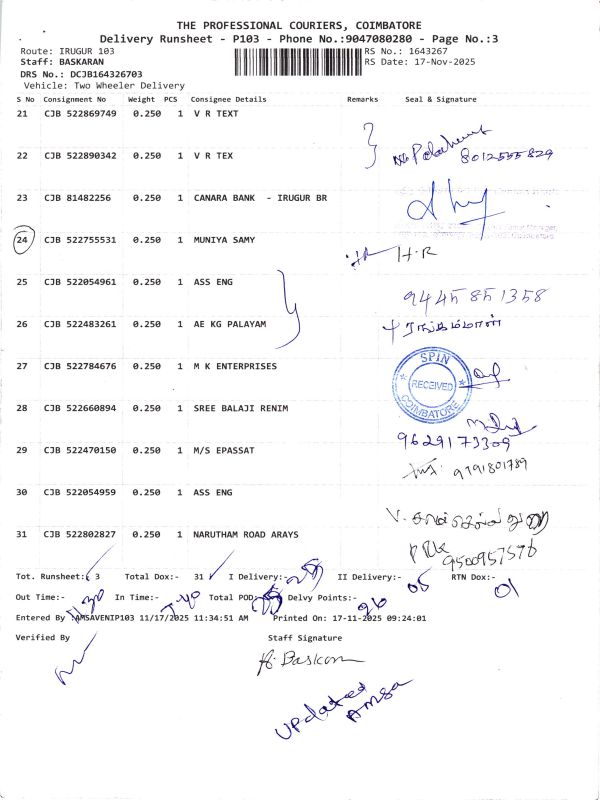 THE PROFESSIONAL COURIERS, COIMBATORE
Delivery Runsheet - P103 - Phone No.:9047080280 - Page No.:3
Route: IRUGUR 103 RS No.: 1643267
Staff: BASKARAN RS Date: 17-Nov-2025
DRS No.: DCJB164326703
Vehicle: Two Wheeler Delivery
S No Consignment No Weight PCS Consignee Details Remarks Seal & Signature
21 CJB 522869749 0.250 1 V R TEXT
22 CJB 522890342 0.250 1 V R TEX
8012555829
23 CJB 81482256 0.250 1 CANARA BANK - IRUGUR BR
24 CJB 522755531 0.250 1 MUNIYA SAMY
H.R
25 CJB 522054961 0.250 1 ASS ENG
9445851358
26 CJB 522483261 0.250 1 AE KG PALAYAM
ரங்கம்மாள்
27 CJB 522784676 0.250 1 M K ENTERPRISES
SPIN
RECEIVED
COIMBATORE
28 CJB 522660894 0.250 1 SREE BALAJI RENIM
9629173309
29 CJB 522470150 0.250 1 M/S EPASSAT
9791801789
30 CJB 522054959 0.250 1 ASS ENG
31 CJB 522802827 0.250 1 NARUTHAM ROAD ARAYS
9500957576
Tot. Runsheet:- 3 Total Dox:- 31 I Delivery:- 25 II Delivery:- 05 RTN Dox:- 01
Out Time:- In Time:- Total POD:- Delvy Points:- 26
Entered By :AMSAVENIP103 11/17/2025 11:34:51 AM Printed On: 17-11-2025 09:24:01
Verified By Staff Signature
Baskaran
Updated
Amsa